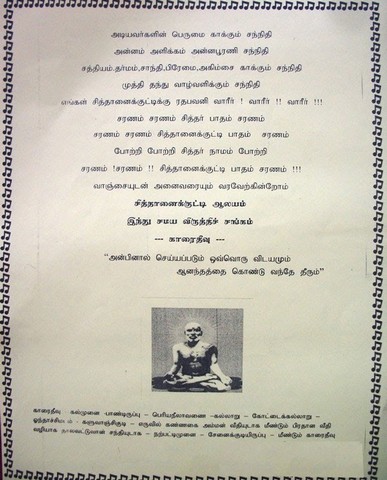 அடியவர்களின் பெருமை காக்கும் சந்நிதி
அன்னம் அளிக்கம் அன்னபூரணி சந்நிதி
சத்தியம்.தர்மம்,சாந்தி,பிரேமை,அகிம்சை காக்கும் சந்நிதி
முத்தி தந்து வாழ்வளிக்கும் சந்நிதி
எங்கள் சித்தானைக்குட்டிக்கு ரதபவனி வாரீர் ! வாரீர் !! வாரீர் !!!
சரணம் சரணம் சித்தர் பாதம் சரணம்
சரணம் சரணம் சித்தானைகுட்டி பாதம் சரணம்
போற்றி போற்றி சித்தர் நாமம் போற்றி
சரணம் !சரணம் !! சித்தானைகுட்டி பாதம் சரணம் !!!
வாஞ்சையுடன் அனைவரையும் வரவேற்கின்றோம்
சித்தானைக்குட்டி ஆலயம்
இந்து சமய விருத்திச் சங்கம்
--- காரைதீவு ---
“அன்பினால் செய்யப்படும் ஒவ்வொரு விடயமும்
ஆனந்தத்தை கொண்டு வந்தே தீரும்”
காரைதீவு கல்முனை -பாண்டிருப்பு – பெரியநீலாவணை -கல்லாறு – கோட்டைக்கல்லாறு –
ஓந்தாச்சிமடம் - களுவாஞ்சிகுடி – எருவில் கண்ணகை அம்மன் வீதியுடாக மீண்டும் பிரதான வீதி
வழியாக தாளவட்டுவான் சந்தியுடாக – நற்பட்டிமுனை – சேனைக்குடியிருப்பு – மீண்டும் காரைதீவு